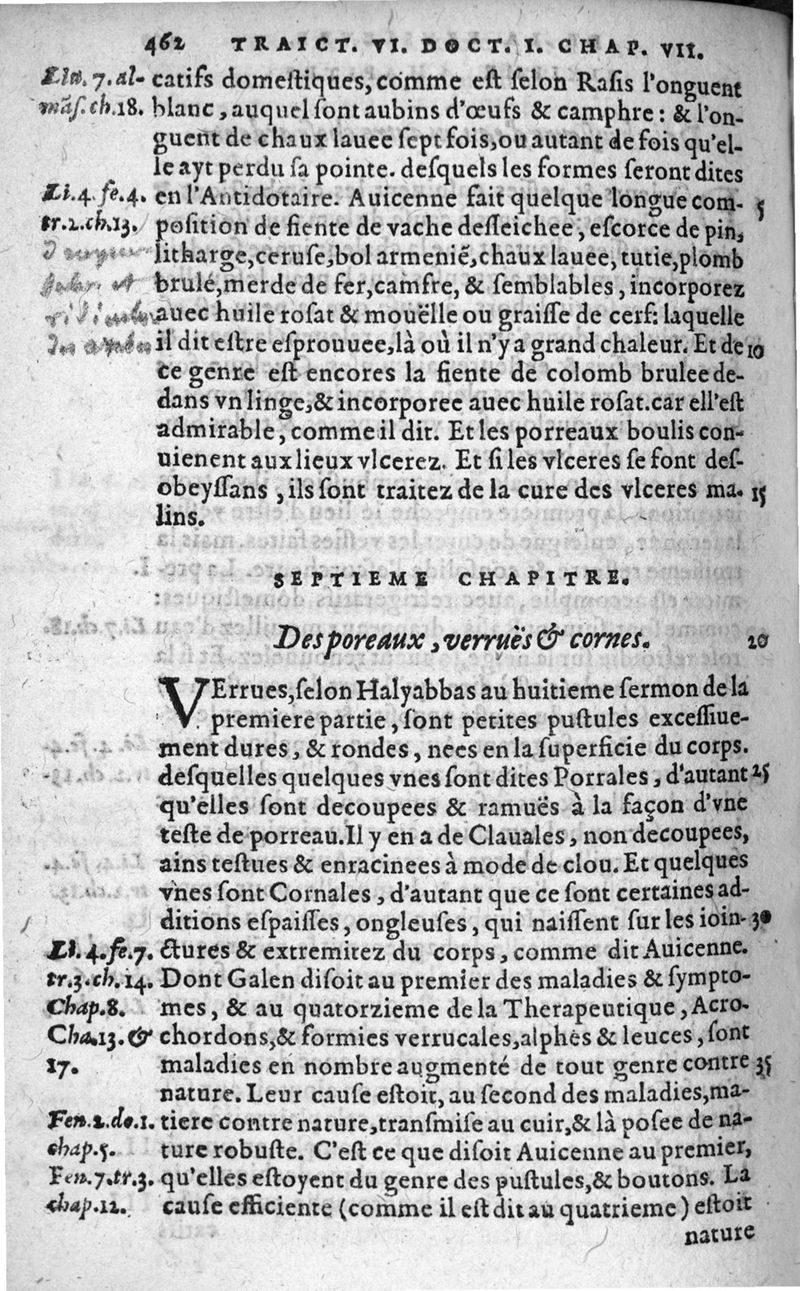 462 TRAICT. VI. DOCT. I. CHAP. VII.
Liu. 7. al- catifs domeſtiques, comme eſt ſelon Raſis l'onguent
māſ. ch. 18. blanc, auquel ſont aubins d'œufs & camphre: & l'on-
guent de chaux lauee ſept fois, ou autant de fois qu'el-
le ayt perdu ſa pointe. deſquels les formes ſeront dites
Li. 4. fe. 4. en l'Antidotaire. Auicenne fait quelque longue com- 5
tr. 2. ch. 13. poſition de fiente de vache deſſeichee, eſcorce de pin,
litharge, ceruſe, bol armeniē, chaux lauee, tutie, plomb
brulé, merde de fer, camfre, & ſemblables, incorporez
auec huile roſat & mouëlle ou graiſſe de cerf: laquelle
il dit eſtre eſprouuee, là où il n'y a grand chaleur. Et de 10
ce genre eſt encores la fiente de colomb brulee de-
dans vn linge, & incorporee auec huile roſat. car ell'eſt
admirable, comme il dit. Et les porreaux boulis con-
uienent aux lieux vlcerez. Et ſi les vlceres ſe font deſ-
obeyſſans, ils ſont traitez de la cure des vlceres ma- 15
lins.
SEPTIEME CHAPITRE.
Des poreaux, verruës & cornes. 20
VErrues, ſelon Halyabbas au huitieme ſermon de la
premiere partie, ſont petites puſtules exceſſiue-
ment dures, & rondes, nees en la ſuperficie du corps.
deſquelles quelques vnes ſont dites Porrales, d'autant 25
qu'elles ſont decoupees & ramuës à la façon d'vne
teſte de porreau. Il y en a de Clauales, non decoupees,
ains teſtues & enracinees à mode de clou. Et quelques
vnes ſont Cornales, d'autant que ce ſont certaines ad-
ditions eſpaiſſes, ongleuſes, qui naiſſent ſur les ioin- 30
Li. 4. fe. 7. ctures & extremitez du corps, comme dit Auicenne.
tr. 3. ch. 14. Dont Galen diſoit au premier des maladies & ſympto-
Chap. 8. mes, & au quatorzieme de la Therapeutique, Acro-
Cha. 13. & chordons, & formies verrucales, alphes & leuces, ſont
17. maladies en nombre augmenté de tout genre contre 35
nature. Leur cauſe eſtoit, au ſecond des maladies, ma-
Fen. 2. do. 1. tiere contre nature, tranſmiſe au cuir, & là poſee de na-
chap. 5. ture robuſte. C'eſt ce que diſoit Auicenne au premier,
Fen. 7. tr. 3. qu'elles eſtoyent du genre des puſtules, & boutons. La
chap. 12. cauſe efficiente (comme il eſt dit au quatrieme) eſtoit
nature